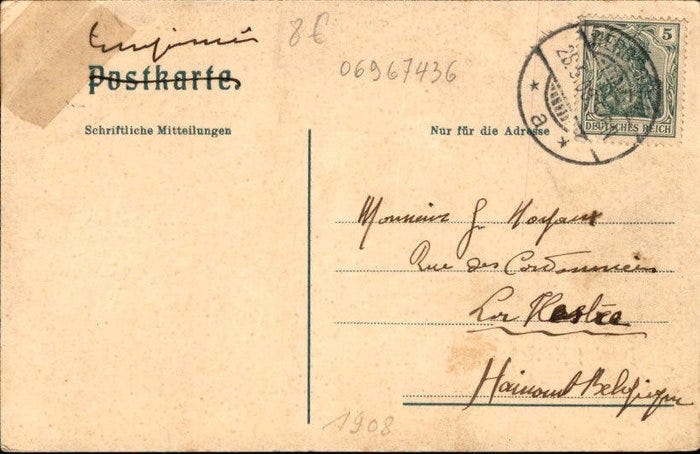 8 €
Postkarte
06967436
5
DEUTSCHES REICH
Schriftliche Mitteilungen
Nur für die Adresse
Monsieur G. Moyaux
Rue des Cordonniers
La Hestre
Hainaut Belgique
1908